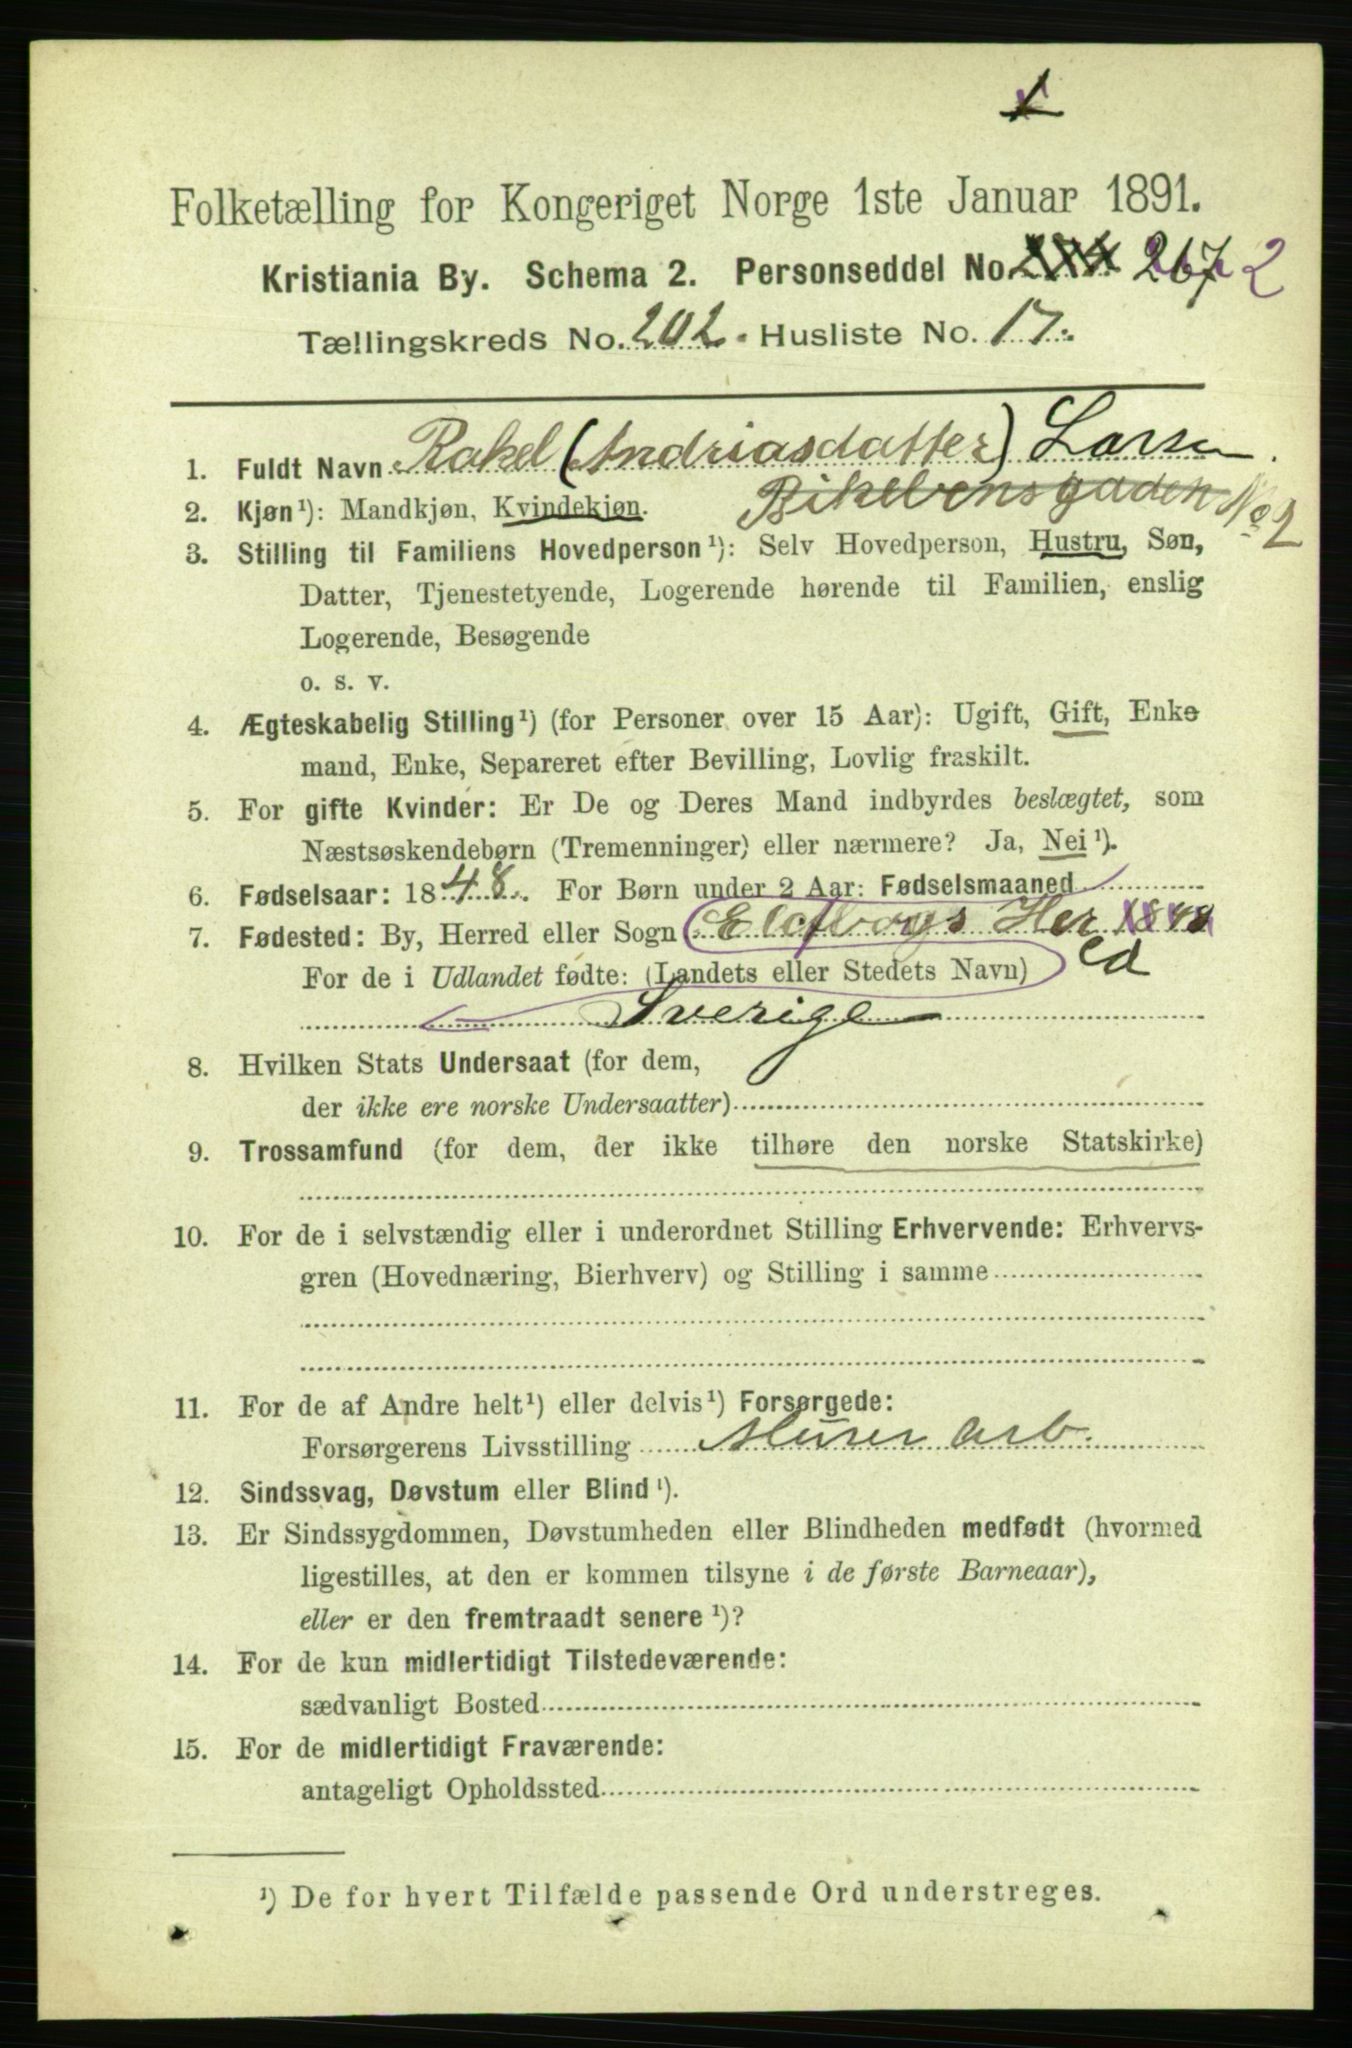 1
Folketælling for Kongeriget Norge 1ste Januar 1891.
Kristiania By. Schema 2. Personseddel No. 267 2
Tællingskreds No. 202. Husliste No. 17.
1. Fuldt Navn Rakel (Andriasdatter) Larsen
2. Kjøn¹): Mandkjøn, Kvindekjøn. No 2
3. Stilling til Familiens Hovedperson¹): Selv Hovedperson, Hustru, Søn,
Datter, Tjenestetyende, Logerende hørende til Familien, enslig
Logerende, Besøgende
o. s. v.
4. Ægteskabelig Stilling¹) (for Personer over 15 Aar): Ugift, Gift, Enke
mand, Enke, Separeret efter Bevilling, Lovlig fraskilt.
5. For gifte Kvinder: Er De og Deres Mand indbyrdes beslægtet, som
Næstsøskendebørn (Tremenninger) eller nærmere? Ja, Nei¹).
6. Fødselsaar: 1848. For Børn under 2 Aar: Fødselsmaaned
7. Fødested: By, Herred eller Sogn Elafborgs Her 1848
ed
For de i Udlandet fødte: (Landets eller Stedets Navn)
Sverige
8. Hvilken Stats Undersaat (for dem,
der ikke ere norske Undersaatter)
9. Trossamfund (for dem, der ikke tilhøre den norske Statskirke)
10. For de i selvstændig eller i underordnet Stilling Erhvervende: Erhvervs-
gren (Hovednæring, Bierhverv) og Stilling i samme
11. For de af Andre helt¹) eller delvis¹) Forsørgede:
Forsørgerens Livsstilling Murer arb.
12. Sindssvag, Døvstum eller Blind¹).
13. Er Sindssygdommen, Døvstumheden eller Blindheden medfødt (hvormed
ligestilles, at den er kommen tilsyne i de første Barneaar),
eller er den fremtraadt senere¹)?
14. For de kun midlertidigt Tilstedeværende:
sædvanligt Bosted
15. For de midlertidigt Fraværende:
antageligt Opholdssted
¹) De for hvert Tilfælde passende Ord understreges.